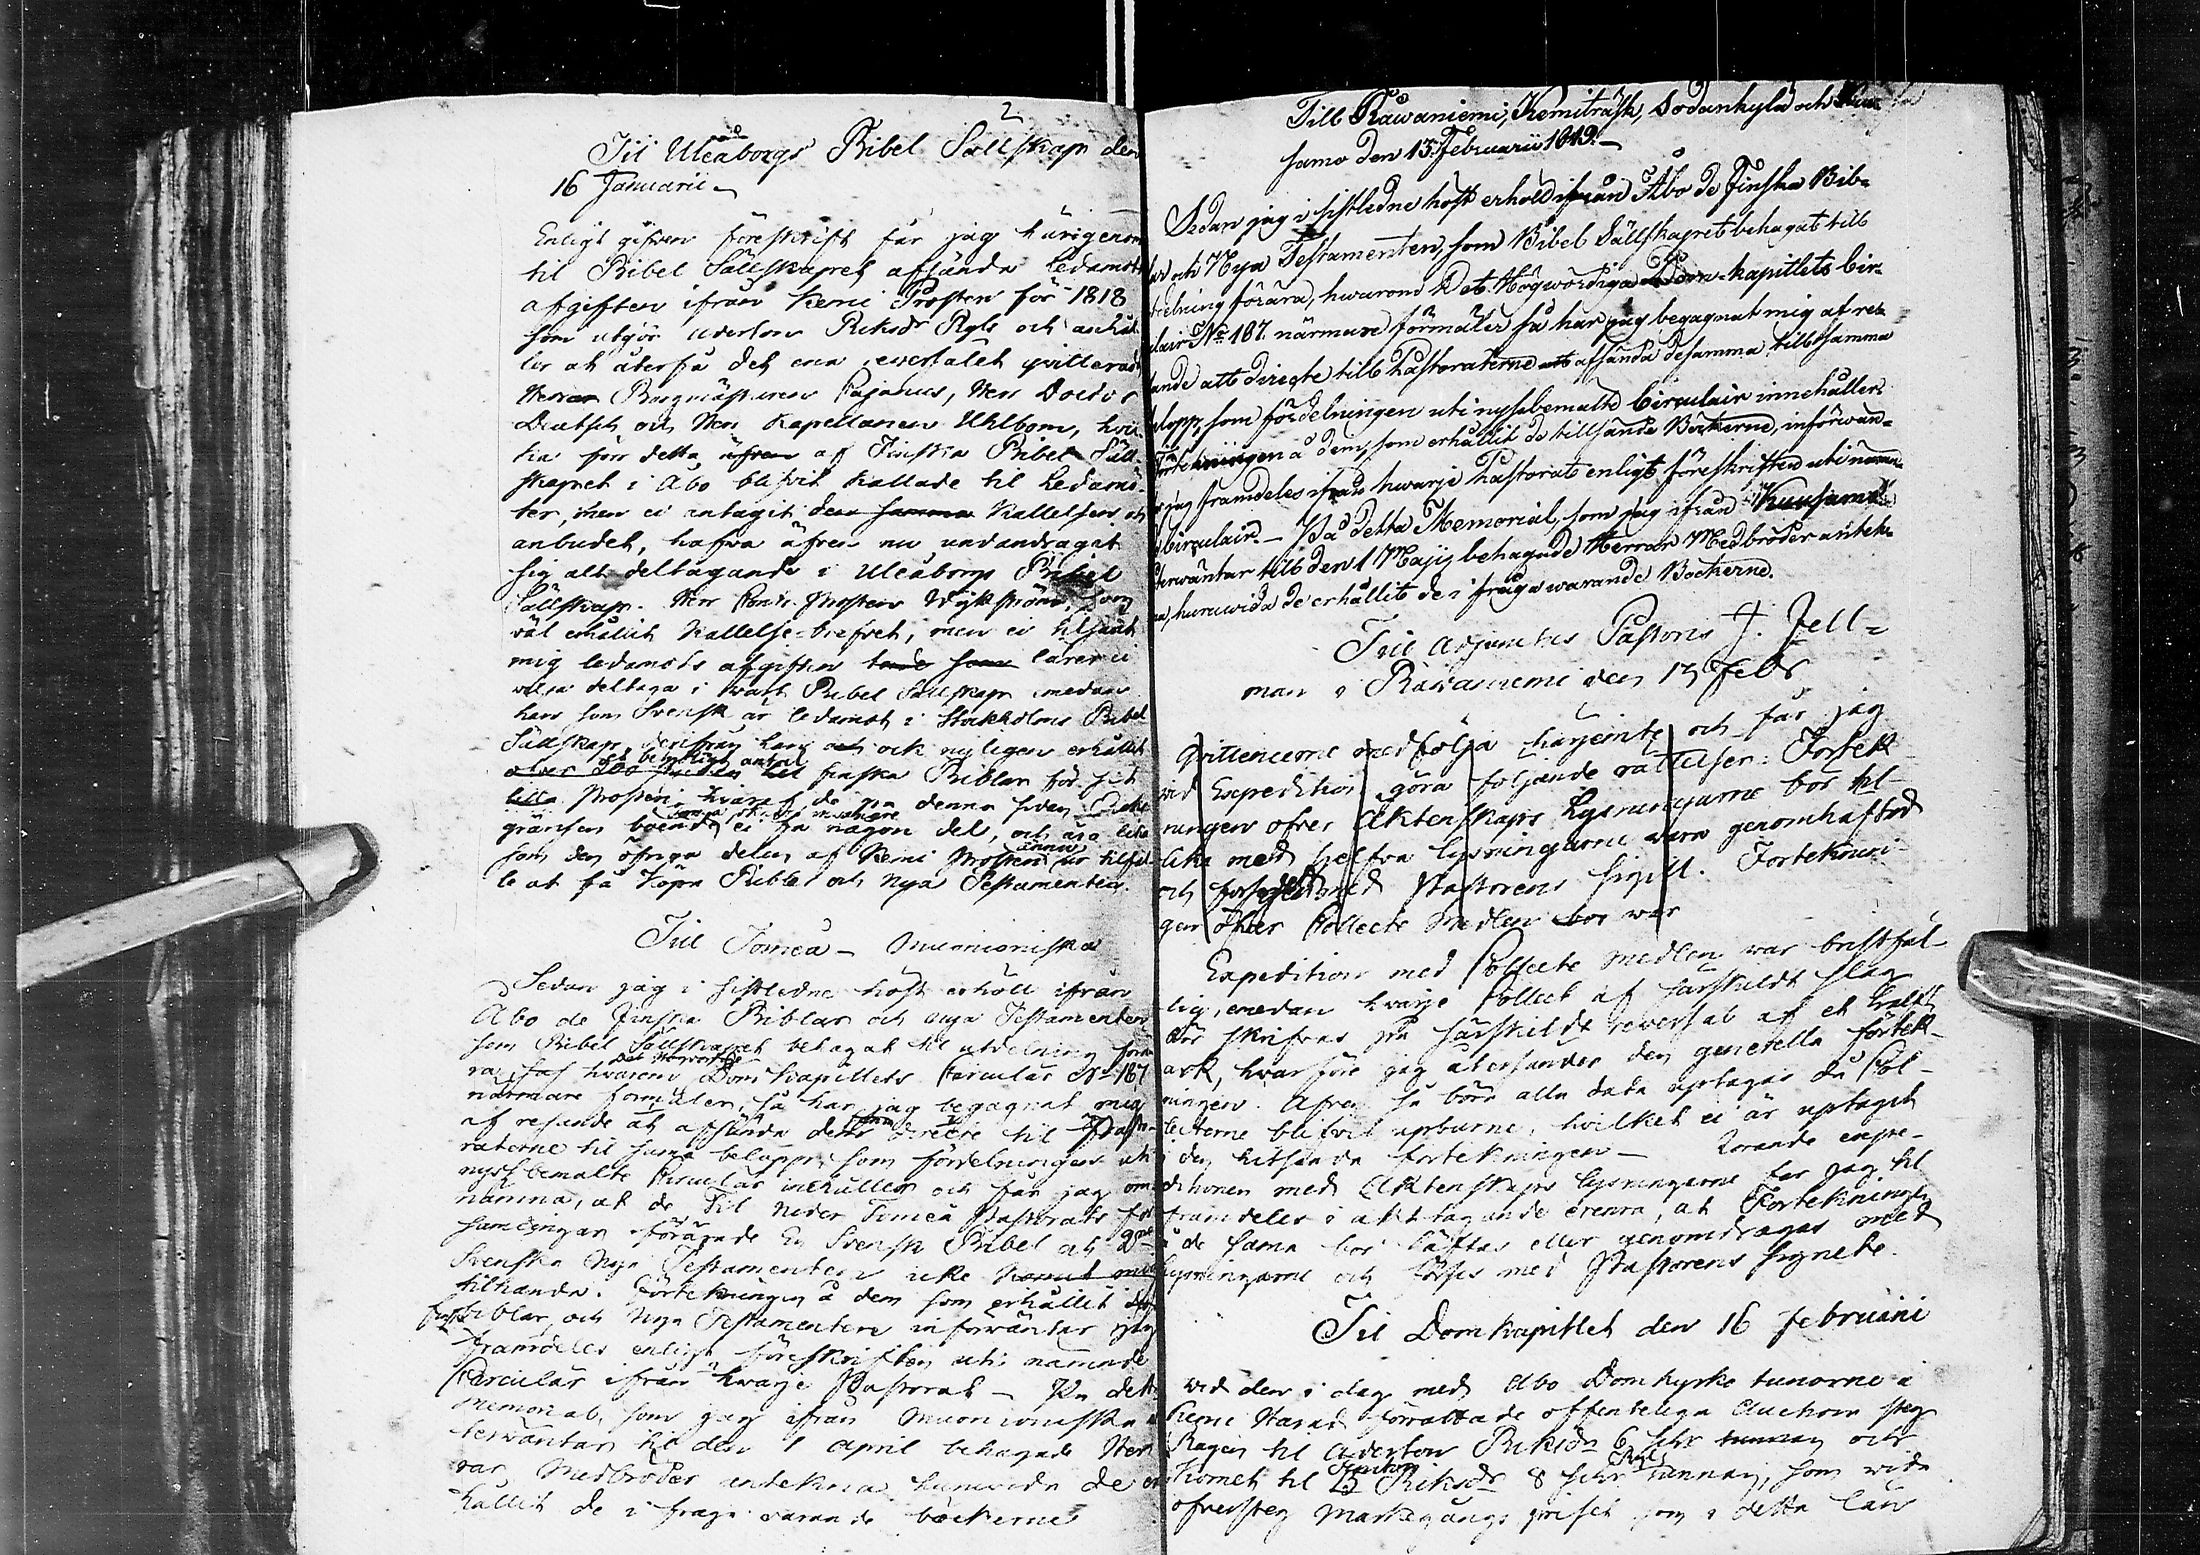 2
Til Uleåborgs Bibel Sällskap den
16 Januarii
Enligt gifven föreskrift får jag härigenom
til Bibel Sällskapet afsända ledamots
afgiften ifrån Kemi Prosteri för 1818
som utgör Riksdr Rgls och
ler at återfå det ena qvitterad
Herrar Borgmästaren Pajanus, Herr Doctor
Deutsch och Herr Kapellanen Uhlbom, hvil-
ka förr detta äfven af Finska Bibel Säll-
skapet i Åbo blifvit kallade til Ledamö-
ter, men ei antagit den samma kallelsen och
anbudet, hafva äfven nu undandragit
sig alt deltagande i Uleåborgs Bibel
Sällskap. Herr Contr. Prosten Wijkström, som
väl erhållit kallelse-brefvet, men ei tilsändt
mig ledamots afgiften lärer ei
vilja deltaga i vårt Bibel Sällskap medan
han som Svensk är ledamot i Stockholms Bibel
Sällskap, derifrån han och ock nyligen erhållit
betydligt antal
finska Biblar för sit
Prosteri, hvaraf de på denna sidan
gränsen boende ei få någon del, och äro lika
ännu
som den öfriga delen af Kemi Prosteri ur tilfäl-
le at få köpa Biblar och Nya Testamenten.
Til Torneå - Muonioniska
Sedan jag i sistledne höst erhöll ifrån
Åbo de Finska Biblar och nya Testamenten
som Bibel Sällskapet behagat til utdelning föra-
ra, hvarom Dom kapitlets Circulär No 187
närmare förmäler, så har jag begagnat mig
af resande at afsända directe til Pasto-
raterne til sama belopp, som fördelningen uti
nyss bemälte Circulär inehåller och får jag om-
nämna, at de Til Neder Torneå Pastorats för-
samlingar förärade En Svensk Bibel och 2ne
Svenska Nya Testamenten icke komit mig
tilhanda. Förtekningen å dem som erhållit de
Biblar och Nya Testamenten införväntar jag
framdeles enligt föreskriften uti nämnde
Circulär ifrån hvarje Pastorat - På detta
memorial, som jag ifrån Muonioniska å
terväntar til den 1 April behagade Her-
rar Medbröder antekna huruvida de er
hållit de i fråga varande böckerne
Till Råwaniemi, Kemiträsk, Sodankylä och Kuu-
samo den 13 Februarii 1819.
Sedan jag i sistledne höst erhöld ifrån Åbo de Finska Bib-
lar och Nya Testamenten, som Bibel Sällskapet behagat till
delning förära, hwarom Det Högwördiga Dom-kapitlets Cir-
culair No 187 närmare förmäler så har jag begagnat mig af re-
sande att directe till Pastoraterne att afsända desamma till samma
belopp, som fördelningen uti nyssbemälte Circulair innehåller.
Förtekningen å dem, som erhållit de tillsände Böckerne, införwän-
tar jag framdeles ifrån hwarje Pastorat enligt föreskriften uti nämn-
de Circulair. - På detta Memorial, som jag ifrån Kuusamo
återwäntar till den 1 Maji behagade Herrar Medbröder antek-
na, huruwida de erhållit de i fråga warande Böckerne.
Till Adjunctus Pastoris J. Fell-
man i Råwaniemi den 13 Febr
Qvittencerne medfölja härjemte och får jag
vid Expedition göra följande rättelser: Förtek-
ningen öfver Äktenskaps Lysningarne bör til-
lika med sjelfva lysningarne vara genomhäftad
och förseglad med Pastorens sigill. Förtekni-
gen öfver Collecte Medlen bör var
Expedition med Collecte medlen var bristfäl-
lig, emedan hvarje Collect af särskildt slag
bör skrifvas på särskildt reversal af et halft
ark, hvarföre jag återsänder den generella förtek-
ningen. Äfven så böra alla data uptagas då Col-
lecterne blifvit upburne, hvilket ei är uptaget
i den hitsända förtekningen - Rörande expe-
ditionen med Äktenskaps lysningarne får jag til
framdeles i akttagande erenra, at Förtekningen
å de sama bör häftas eller genomdragas med
lysningarne och förses med Pastorens signete.
Til Domkapitlet den 16 Februarii
Vid den i dag med Åbo Domkyrko tunnorne i
Kemi Härad förrättade offenteliga Auction steg
Rågen til Aderton Riksdr 6 schr tunnan och
Kornet til Riksdr 8 schr Rgls tunnan, som vida
öfversteg Markegångs priset som i detta Län